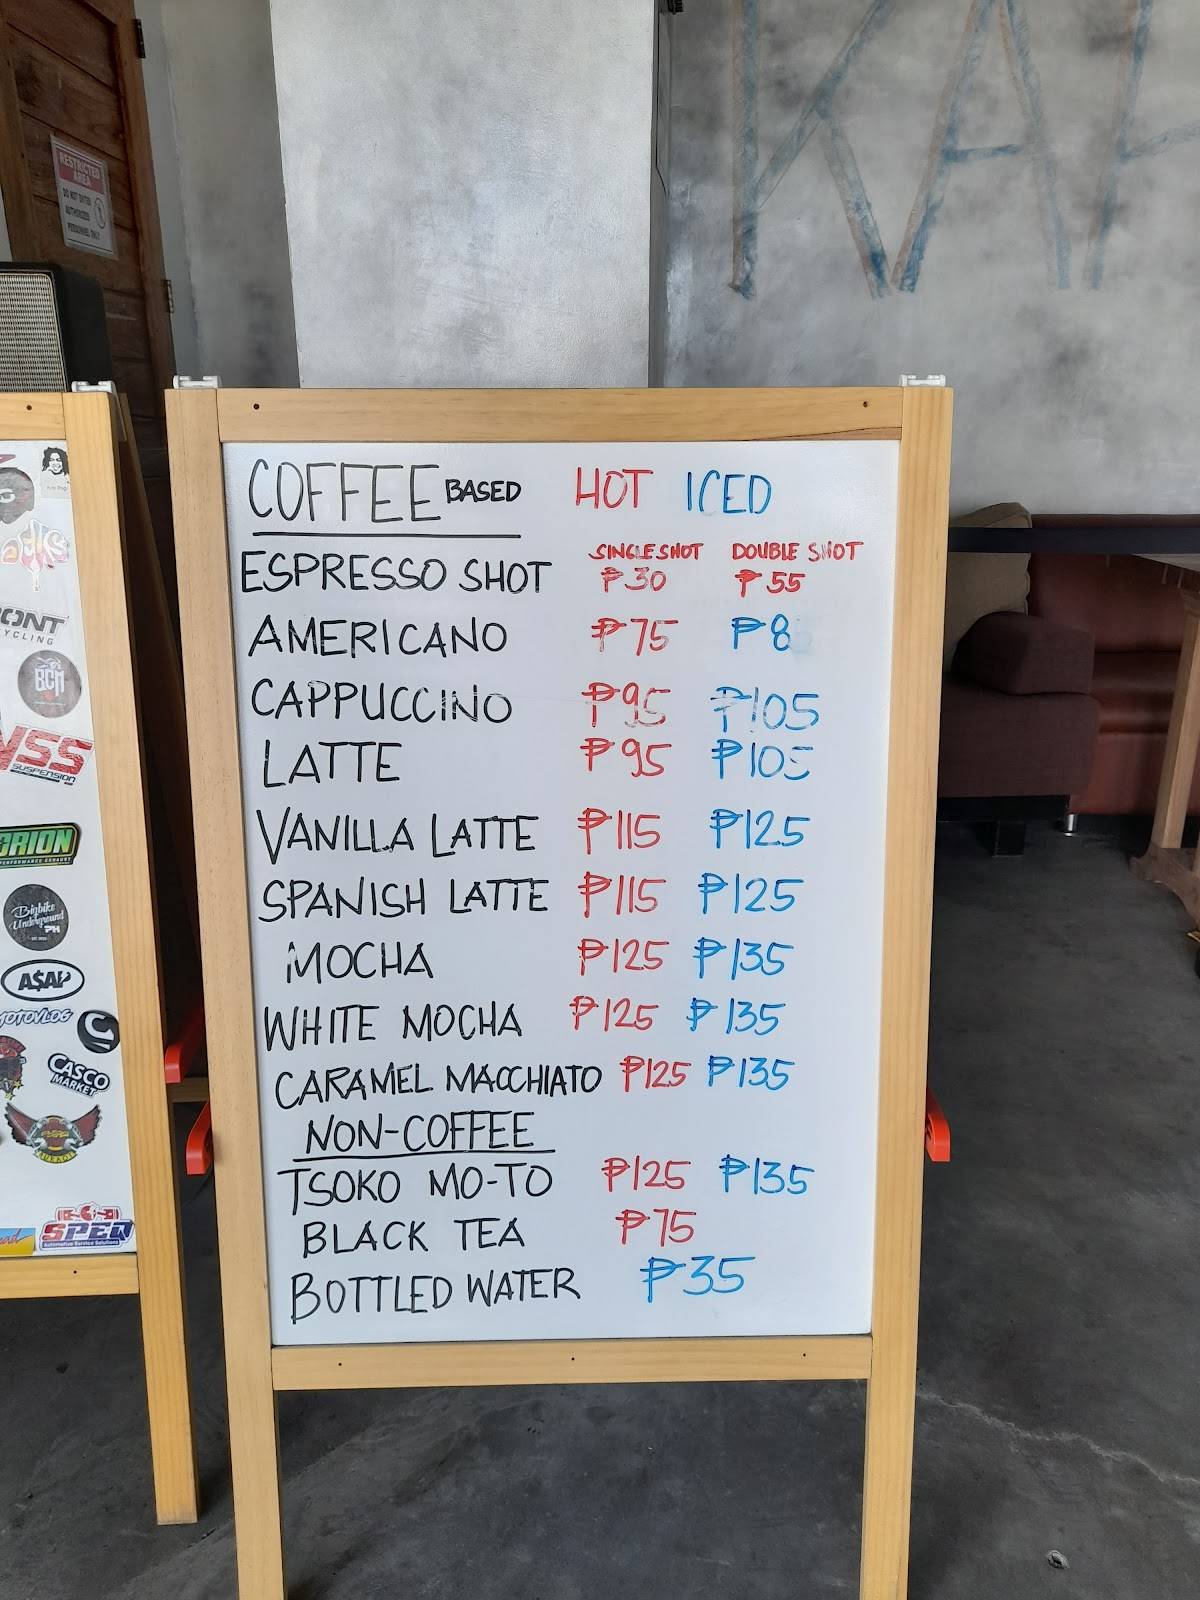 KAH
RESTRICTED AREA
DO NOT ENTER
AUTHORIZED
PERSONNEL ONLY
COFFEE BASED HOT ICED
SINGLE SHOT DOUBLE SHOT
ESPRESSO SHOT ₱30 ₱55
AMERICANO ₱75 ₱8
CAPPUCCINO ₱95 ₱105
LATTE ₱95 ₱105
VANILLA LATTE ₱115 ₱125
SPANISH LATTE ₱115 ₱125
MOCHA ₱125 ₱135
WHITE MOCHA ₱125 ₱135
CARAMEL MACCHIATO ₱125 ₱135
NON-COFFEE
TSOKO MO-TO ₱125 ₱135
BLACK TEA ₱75
BOTTLED WATER ₱35
ONT
CYCLING
BCM
SS
SUSPENSION
ORION
PERFORMANCE EXHAUST
Bigbike
Underground
PH
A$AP
MOTOVLOG
CASCO
MARKET
SPEQ
Automotive Service Solutions